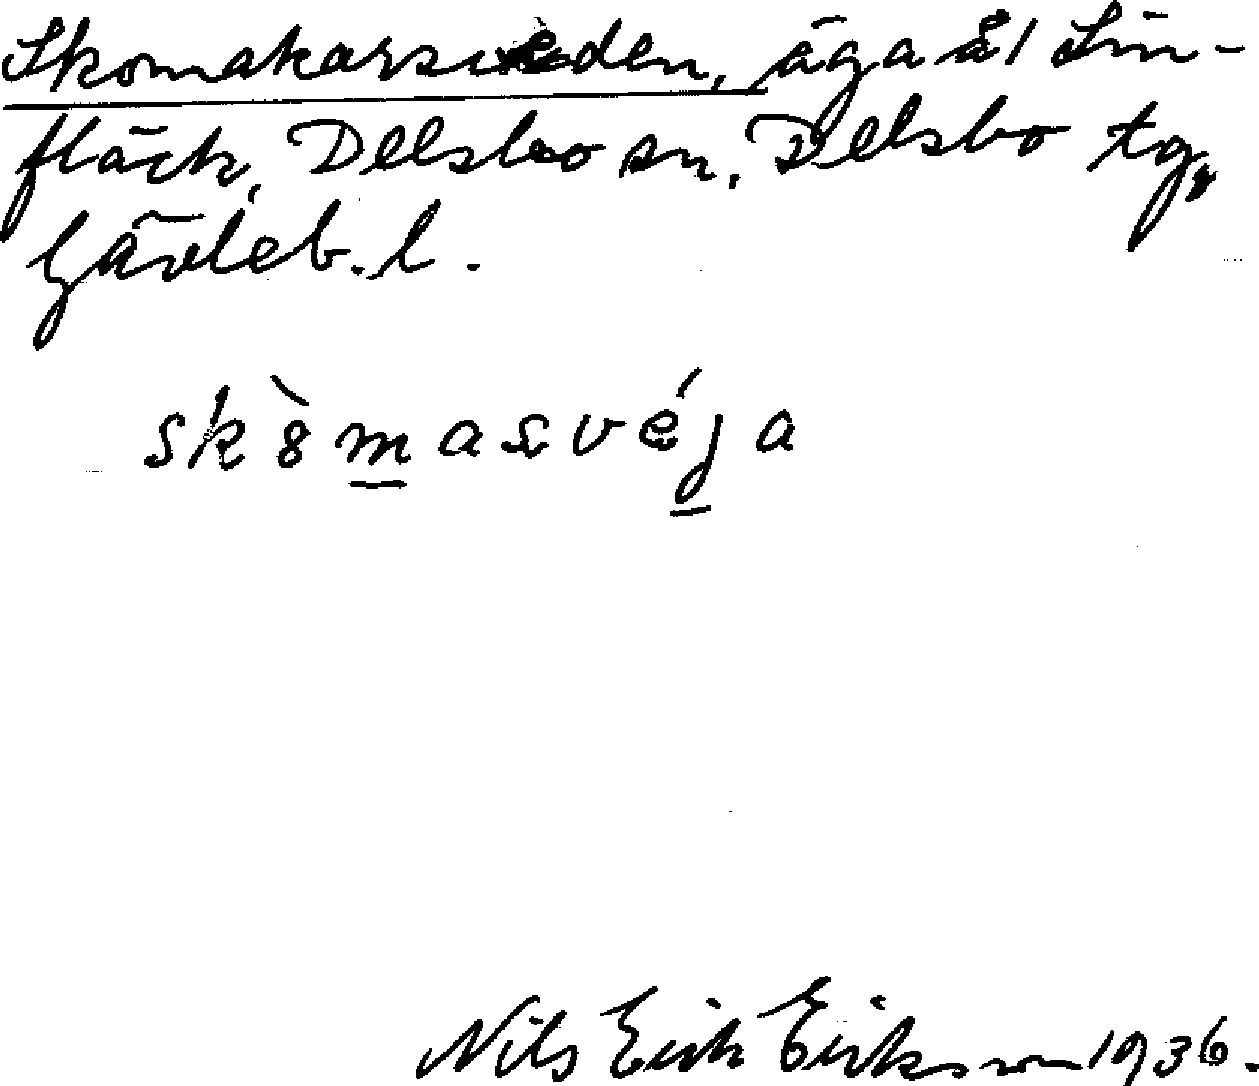 Skomakarsveden, äga å 1 Lin-
fläck, Delsbo sn, Delsbo tg,
Gävleb. l.
sk8̀masvéja
Nils Erik Eriksson 1936.